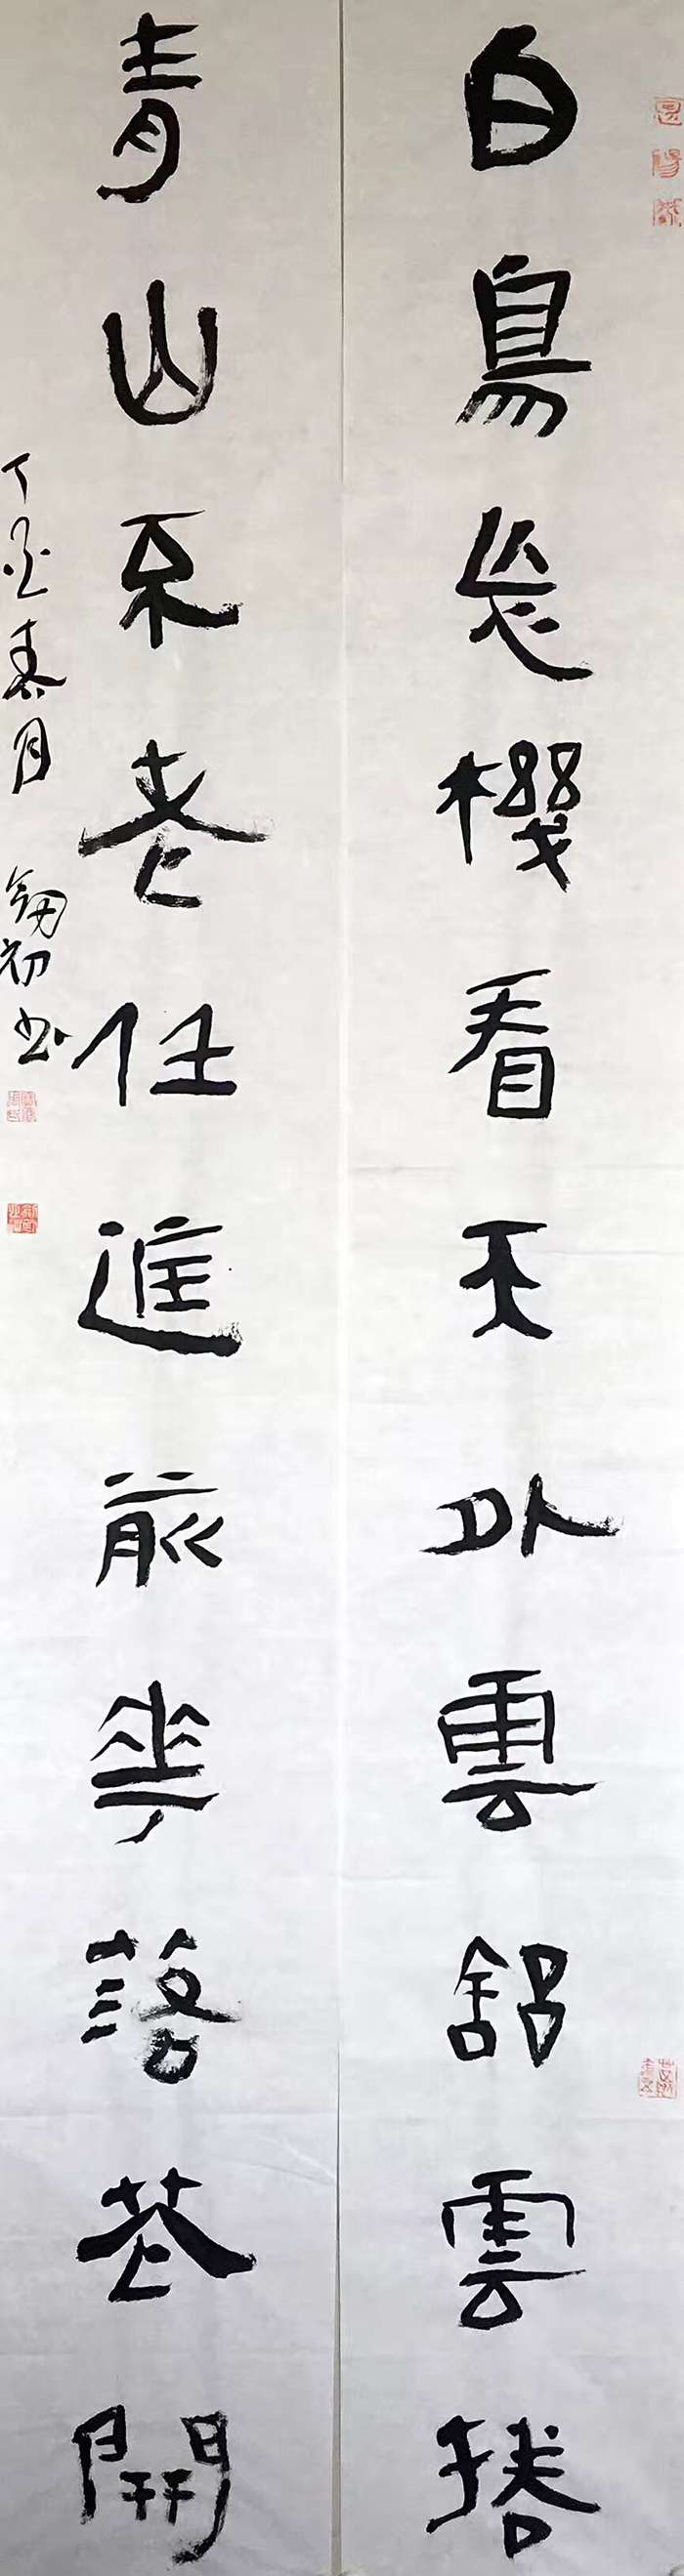 白鳥忘機看天外雲舒雲捲
青山不老任庭前華落花開
丁亥春月 劍初书